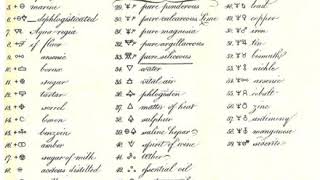 5. marine
6. dephlogisticated
7. Aqua regia
8. of fluor
9. arsenic
10. borax
11. sugar
12. tartar
13. sorrel
14. lemon
15. benzoin
16. amber
17. sugar of milk
18. acetous distilled
29. pure ponderous
30. pure calcareous Lime
31. pure magnesia
32. pure argillaceous
33. pure siliceous
34. water
35. vital air
36. phlogiston
37. matter of heat
38. sulphur
39. saline hepar
40. spirit of wine
41. æther
42. essential oil
lead
copper
iron
tin
bismuth
nickle
arsenic
cobalt
zinc
antimony
manganese
siderite